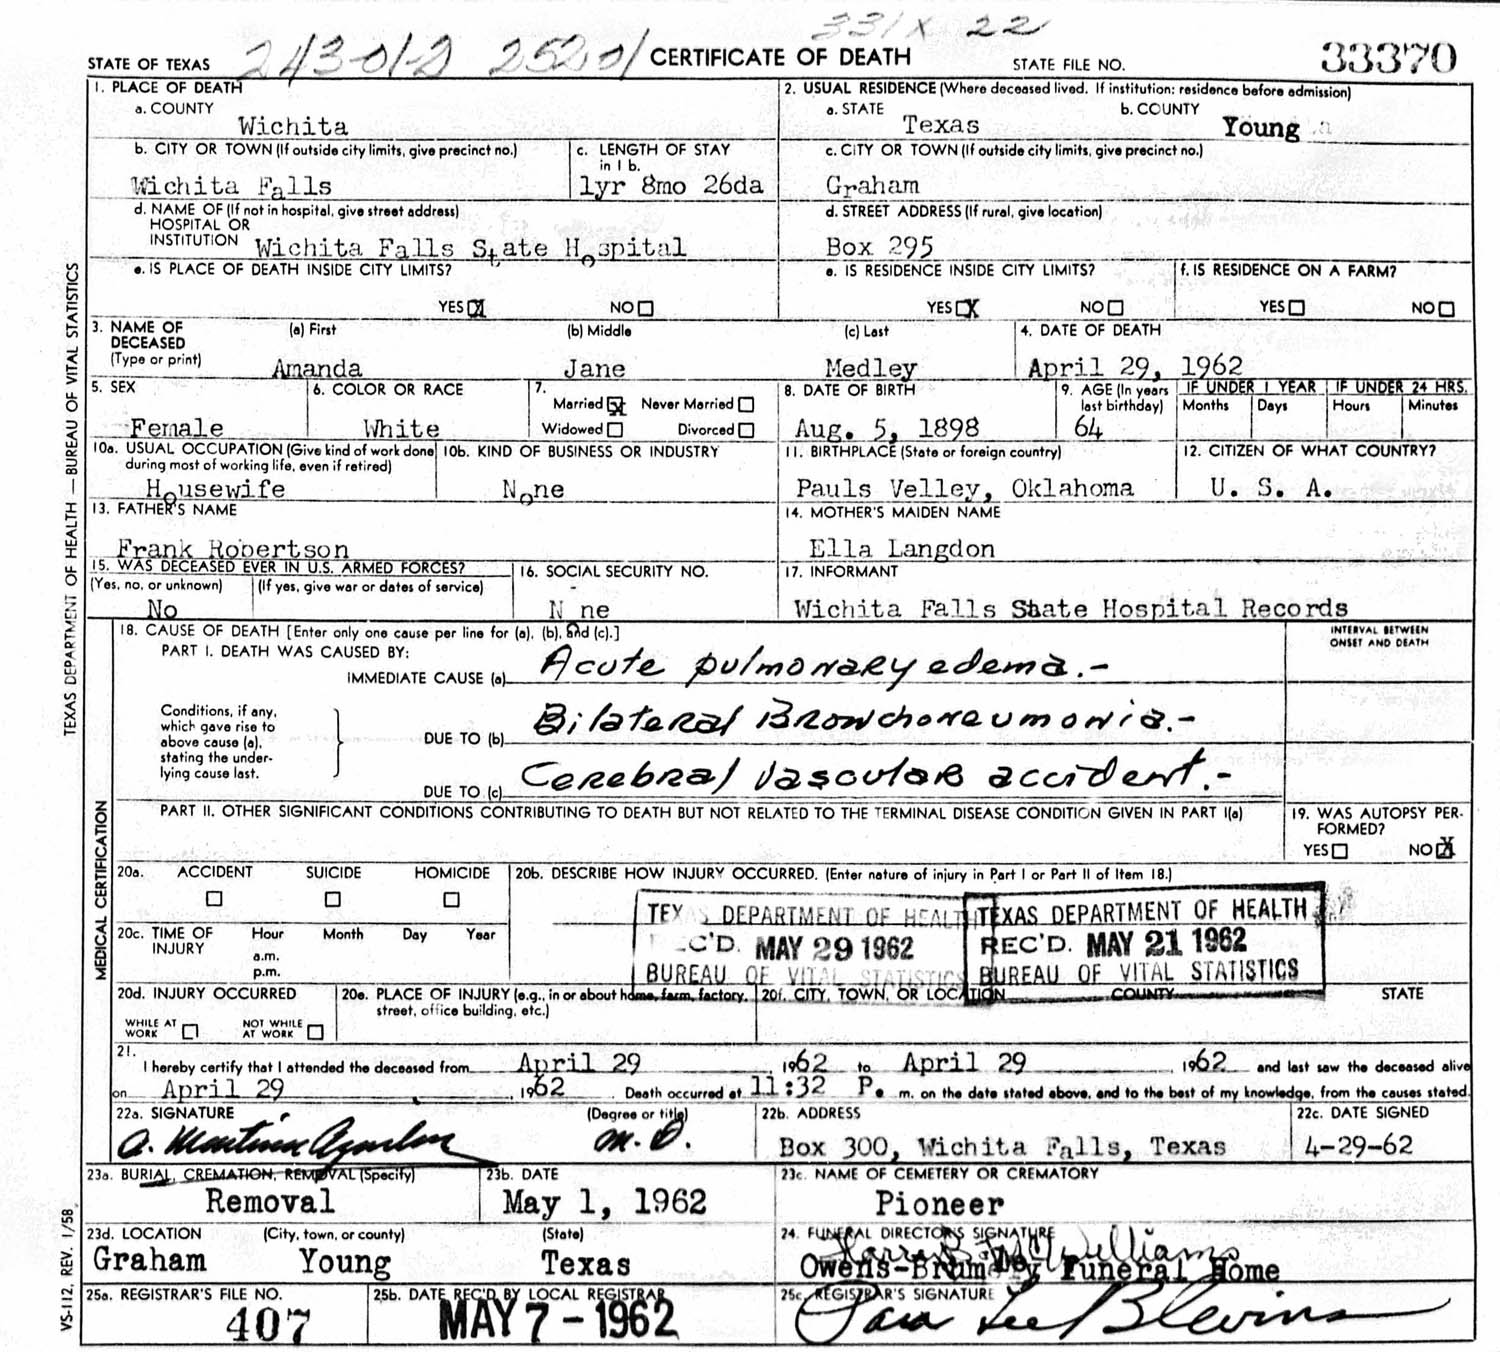 331X 22
STATE OF TEXAS 243-01-2 25201 CERTIFICATE OF DEATH STATE FILE NO. 33370
1. PLACE OF DEATH
a. COUNTY
Wichita
2. USUAL RESIDENCE (Where deceased lived. If institution: residence before admission)
a. STATE b. COUNTY
Texas Young
b. CITY OR TOWN (If outside city limits, give precinct no.)
Wichita Falls
c. LENGTH OF STAY
in 1 b.
1yr 8mo 26da
c. CITY OR TOWN (If outside city limits, give precinct no.)
Graham
d. NAME OF (If not in hospital, give street address)
HOSPITAL OR
INSTITUTION Wichita Falls State Hospital
d. STREET ADDRESS (If rural, give location)
Box 295
e. IS PLACE OF DEATH INSIDE CITY LIMITS?
YES X NO
e. IS RESIDENCE INSIDE CITY LIMITS?
YES X NO
f. IS RESIDENCE ON A FARM?
YES NO
3. NAME OF
DECEASED
(Type or print)
(a) First (b) Middle (c) Last
Amanda Jane Medley
4. DATE OF DEATH
April 29, 1962
5. SEX
Female
6. COLOR OR RACE
White
7.
Married X Never Married
Widowed Divorced
8. DATE OF BIRTH
Aug. 5, 1898
9. AGE (In years
last birthday)
64
IF UNDER 1 YEAR IF UNDER 24 HRS.
Months Days Hours Minutes
10a. USUAL OCCUPATION (Give kind of work done
during most of working life, even if retired)
Housewife
10b. KIND OF BUSINESS OR INDUSTRY
None
11. BIRTHPLACE (State or foreign country)
Pauls Velley, Oklahoma
12. CITIZEN OF WHAT COUNTRY?
U. S. A.
13. FATHER'S NAME
Frank Robertson
14. MOTHER'S MAIDEN NAME
Ella Langdon
15. WAS DECEASED EVER IN U.S. ARMED FORCES?
(Yes, no, or unknown) (If yes, give war or dates of service)
No
16. SOCIAL SECURITY NO.
N ne
17. INFORMANT
Wichita Falls State Hospital Records
18. CAUSE OF DEATH [Enter only one cause per line for (a), (b), and (c).]
PART I. DEATH WAS CAUSED BY:
IMMEDIATE CAUSE (a) Acute pulmonary edema.-
INTERVAL BETWEEN
ONSET AND DEATH
Conditions, if any,
which gave rise to
above cause (a),
stating the under-
lying cause last.
DUE TO (b) Bilateral Bronchoneumonia.-
DUE TO (c) Cerebral vascular accident.-
PART II. OTHER SIGNIFICANT CONDITIONS CONTRIBUTING TO DEATH BUT NOT RELATED TO THE TERMINAL DISEASE CONDITION GIVEN IN PART I(a)
19. WAS AUTOPSY PER-
FORMED?
YES NO X
20a. ACCIDENT SUICIDE HOMICIDE
20b. DESCRIBE HOW INJURY OCCURRED. (Enter nature of injury in Part I or Part II of Item 18.)
TEXAS DEPARTMENT OF HEALTH
REC'D. MAY 29 1962
BUREAU OF VITAL STATISTICS
TEXAS DEPARTMENT OF HEALTH
REC'D. MAY 21 1962
BUREAU OF VITAL STATISTICS
20c. TIME OF
INJURY
Hour Month Day Year
a.m.
p.m.
20d. INJURY OCCURRED
WHILE AT
WORK
NOT WHILE
AT WORK
20e. PLACE OF INJURY (e.g., in or about home, farm, factory,
street, office building, etc.)
20f. CITY, TOWN, OR LOCATION COUNTY STATE
21.
I hereby certify that I attended the deceased from April 29, 1962 to April 29, 1962 and last saw the deceased alive
on April 29, 1962. Death occurred at 11:32 P. m. on the date stated above, and to the best of my knowledge, from the causes stated.
22a. SIGNATURE (Degree or title)
M. D.
22b. ADDRESS
Box 300, Wichita Falls, Texas
22c. DATE SIGNED
4-29-62
23a. BURIAL, CREMATION, REMOVAL (Specify)
Removal
23b. DATE
May 1, 1962
23c. NAME OF CEMETERY OR CREMATORY
Pioneer
23d. LOCATION (City, town, or county) (State)
Graham Young Texas
24. FUNERAL DIRECTOR'S SIGNATURE
McWilliams
Owens-Brumley Funeral Home
25a. REGISTRAR'S FILE NO.
407
25b. DATE REC'D BY LOCAL REGISTRAR
MAY 7 - 1962
25c. REGISTRAR'S SIGNATURE
Lee Blevins
TEXAS DEPARTMENT OF HEALTH — BUREAU OF VITAL STATISTICS
MEDICAL CERTIFICATION
VS-112, REV. 1/58